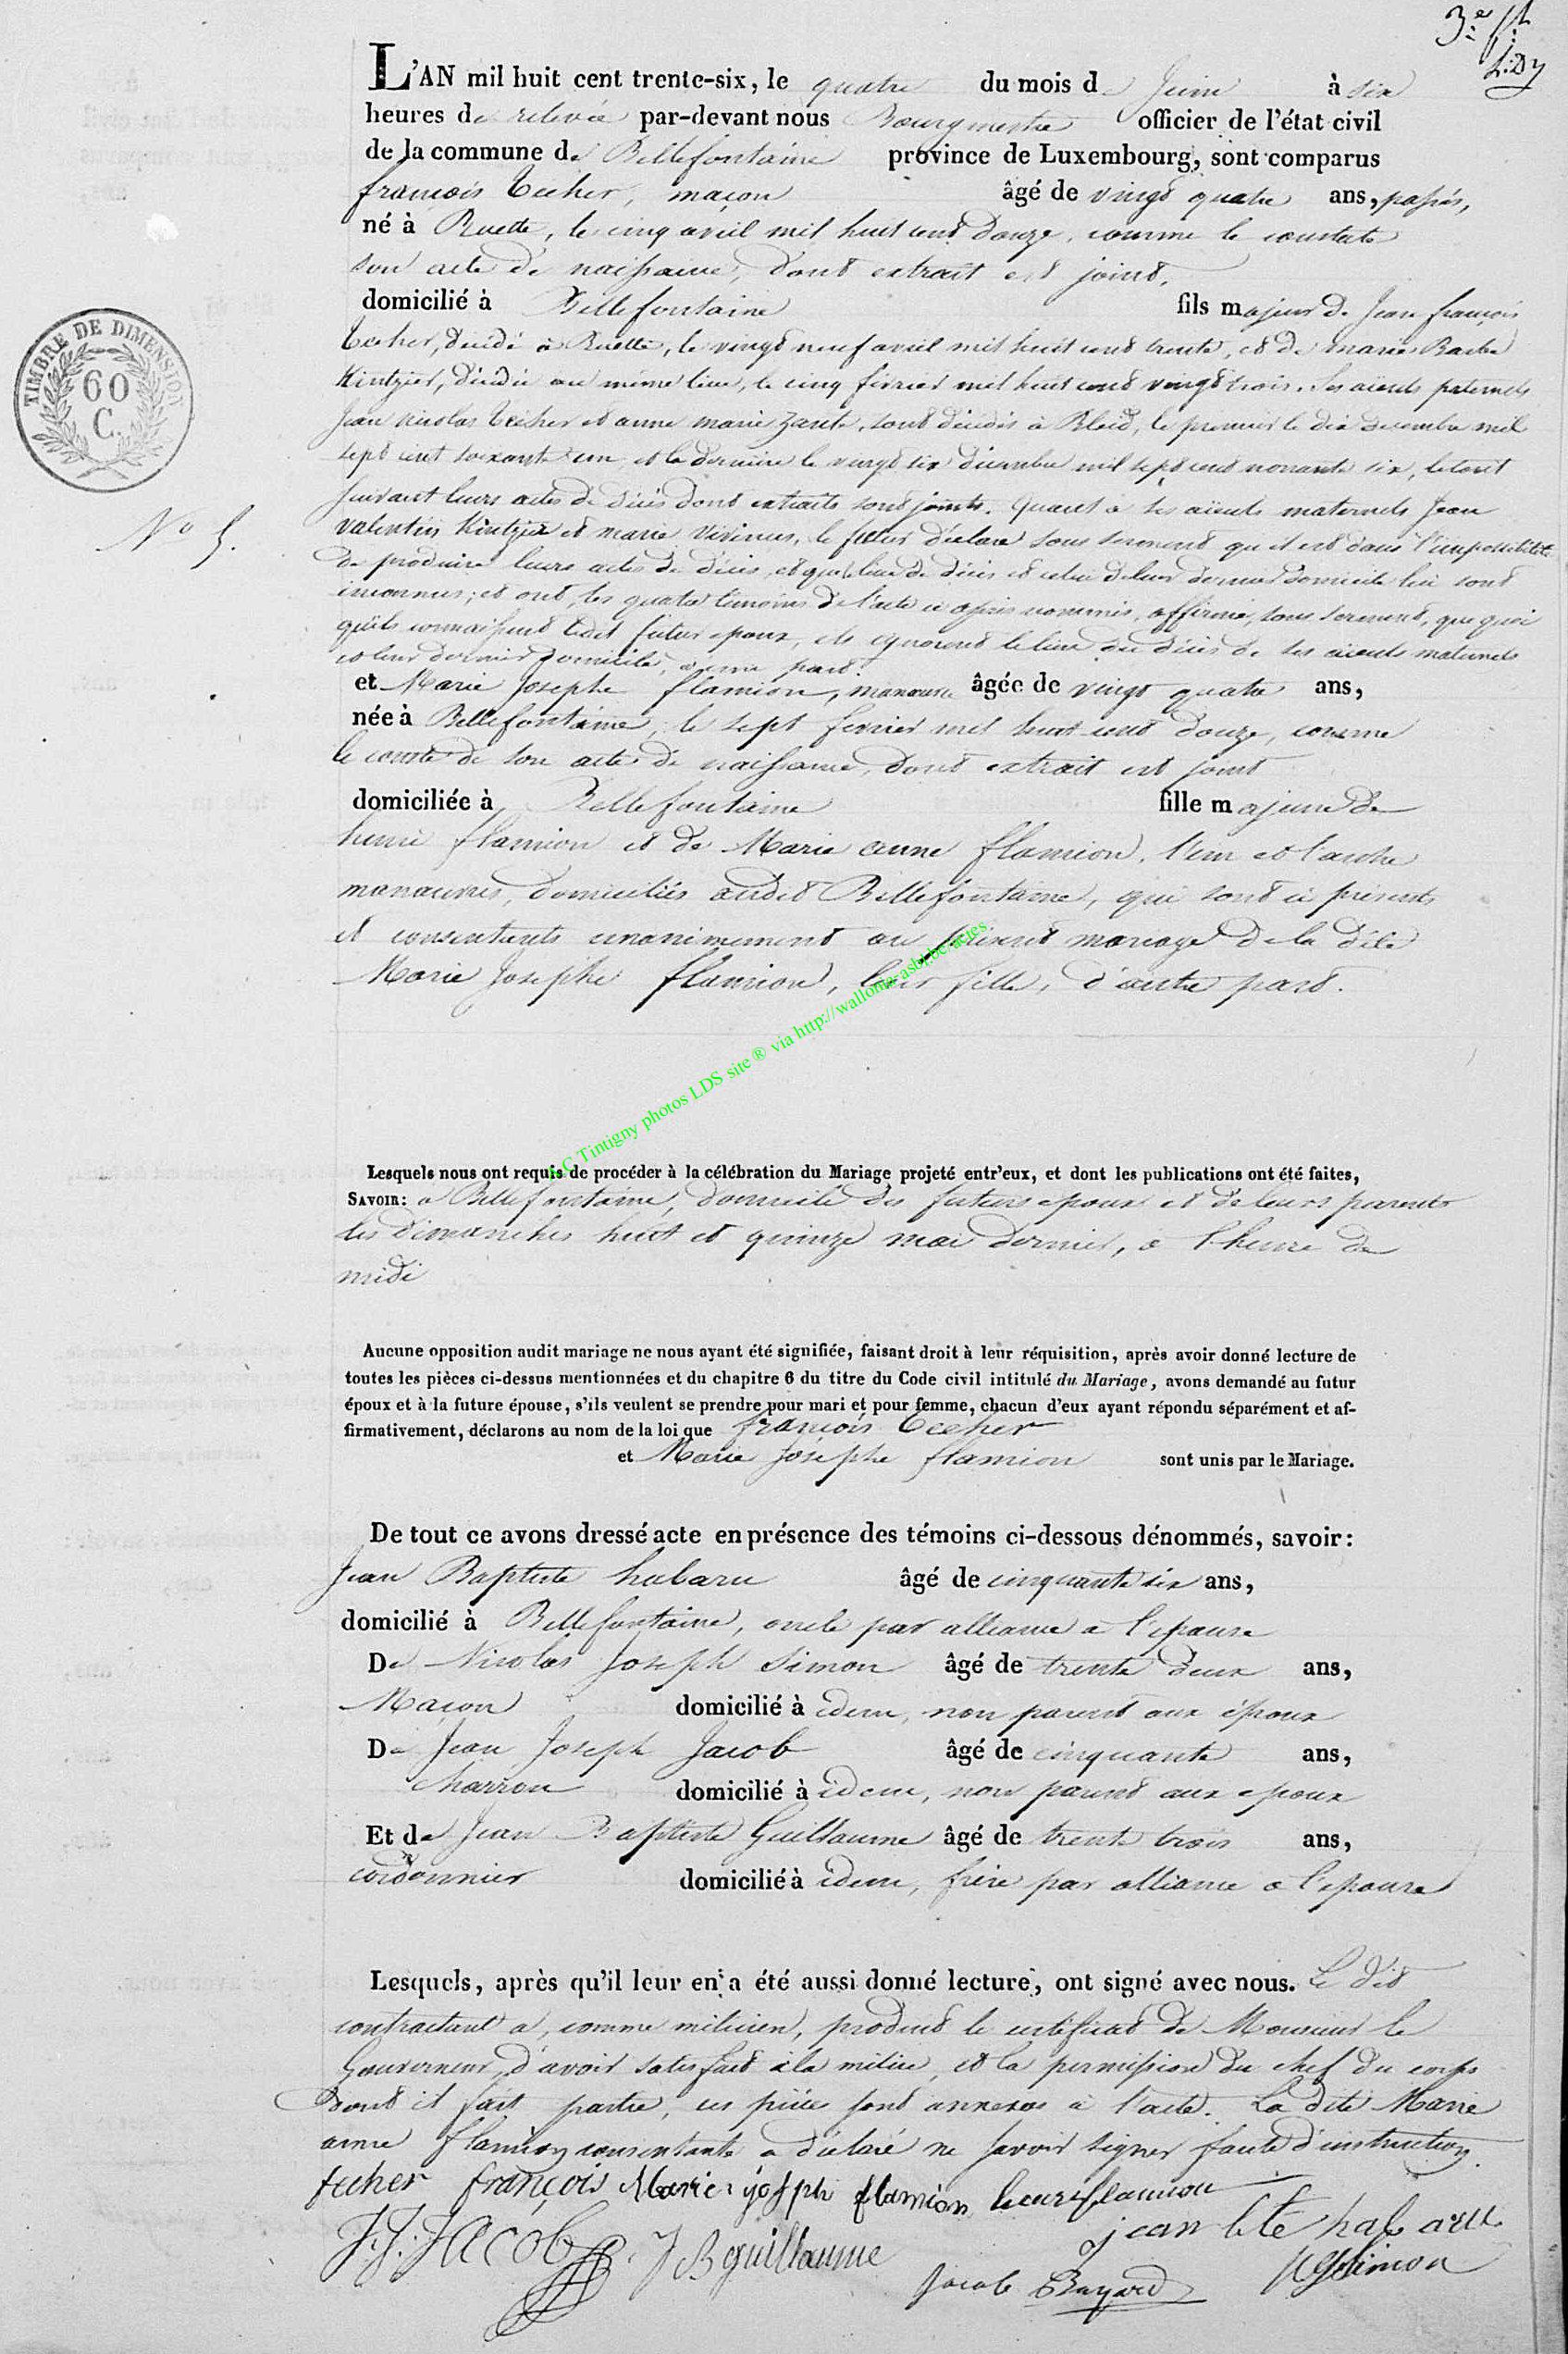 3e ft
L'AN mil huit cent trente-six, le quatre du mois de Juin à six
heures de relevée par-devant nous Bourgmestre officier de l'état civil
de la commune de Bellefontaine province de Luxembourg, sont comparus
françois Techer, maçon âgé de vingt quatre ans, passés,
né à Ruette, le cinq avril mil huit cent douze, comme le constate
son acte de naissance, dont extrait est joint,
domicilié à Bellefontaine fils majeur de Jean françois
Techer, décédé à Ruette, le vingt neuf avril mil huit cent trente, et de marie Barbe
Kintzier, décédée au même lieu, le cinq février mil huit cent vingt trois. Ses aïeuls paternels
Jean nicolas Techer et anne marie Zante, sont décédés à Bleid, le premier le dix décembre mil
sept cent soixante un, et la dernière le vingt six décembre mil sept cent nonante six, le tout
suivant leurs actes de décès dont extraits sont joints. Quant à ses aïeuls maternels Jean
Valentin Kintzier et marie Vivinus, le futur déclare sous serment qu'il est dans l'impossibilité
de produire leurs actes de décès, et que le lieu de décès et celui de leur dernier domicile lui sont
inconnus; et ont, les quatre témoins de l'acte ci après nommés, affirmé, sous serment, que quoi
qu'ils connaissent ledit futur epoux, ils ignorent le lieu du décès de ses aïeuls maternels
et leur dernier domicile, d'une part.
et Marie Josephe flamion, manœuvre âgée de vingt quatre ans,
née à Bellefontaine, le sept fevrier mil huit cent douze, comme
le conste de son acte de naissance, dont extrait est joint
domiciliée à Bellefontaine fille majeure de
henri flamion et de Marie anne flamion, l'un et l'autre
manœuvres, domiciliés audit Bellefontaine, qui sont ici présents
et consentants unanimement au présent mariage de la dite
Marie Josephe flamion, leur fille, d'autre part.
Lesquels nous ont requis de procéder à la célébration du Mariage projeté entr'eux, et dont les publications ont été faites,
SAVOIR: a Bellefontaine, domicile des futurs epoux et de leurs parents
les dimanches huit et quinze mai dernier, a l'heure de
midi
Aucune opposition audit mariage ne nous ayant été signifiée, faisant droit à leur réquisition, après avoir donné lecture de
toutes les pièces ci-dessus mentionnées et du chapitre 6 du titre du Code civil intitulé du Mariage, avons demandé au futur
époux et à la future épouse, s'ils veulent se prendre pour mari et pour femme, chacun d'eux ayant répondu séparément et af-
firmativement, déclarons au nom de la loi que françois Techer
et Marie Josephe flamion sont unis par le Mariage.
De tout ce avons dressé acte en présence des témoins ci-dessous dénommés, savoir:
Jean Baptiste habaru âgé de cinquante six ans,
domicilié à Bellefontaine, oncle par alliance a l'epouse
De Nicolas Joseph Simon âgé de trente deux ans,
Maçon domicilié à idem, non parent aux époux
De Jean Joseph Jacob âgé de cinquante ans,
charron domicilié à idem, non parent aux epoux
Et de Jean Baptiste Guillaume âgé de trente trois ans,
cordonnier domicilié à idem, frère par alliance a l'epouse
Lesquels, après qu'il leur en a été aussi donné lecture, ont signé avec nous. Le dit
contractant a, comme milicien, produit le certificat de Monsieur le
Gouverneur, d'avoir satisfait à la milice, et la permission du chef du corps
dont il fait partie, ces pièces sont annexées à l'acte. La dite Marie
anne flamion consentante a déclaré ne savoir signer faute d'instruction.
techer françois Marie joseph flamion henri flamion
J.J. JACOB JB guillaume jean bte habaru
Jacob Bayard NJ Simon
TIMBRE DE DIMENSION
60
C.
No 5.
Tintigny photos LDS site ® via http://wallonia-asbl.be/actes.